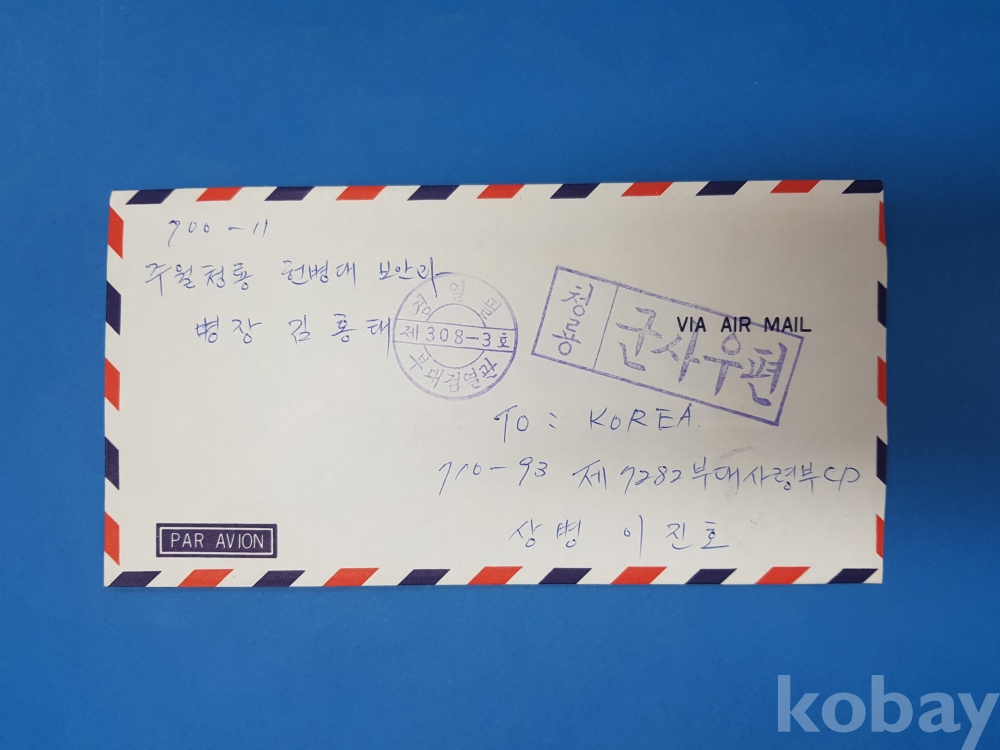 700-11
주월청룡 헌병대 보안과
병장 김홍태
검열필
제308-3호
부대검열관
청룡
군사우편
VIA AIR MAIL
TO: KOREA
710-93 제7282부대사령부CP
상병 이진호
PAR AVION
kobay